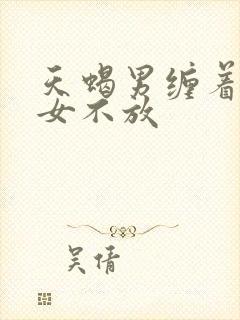 天蝎男缠着
女不放
吴倩